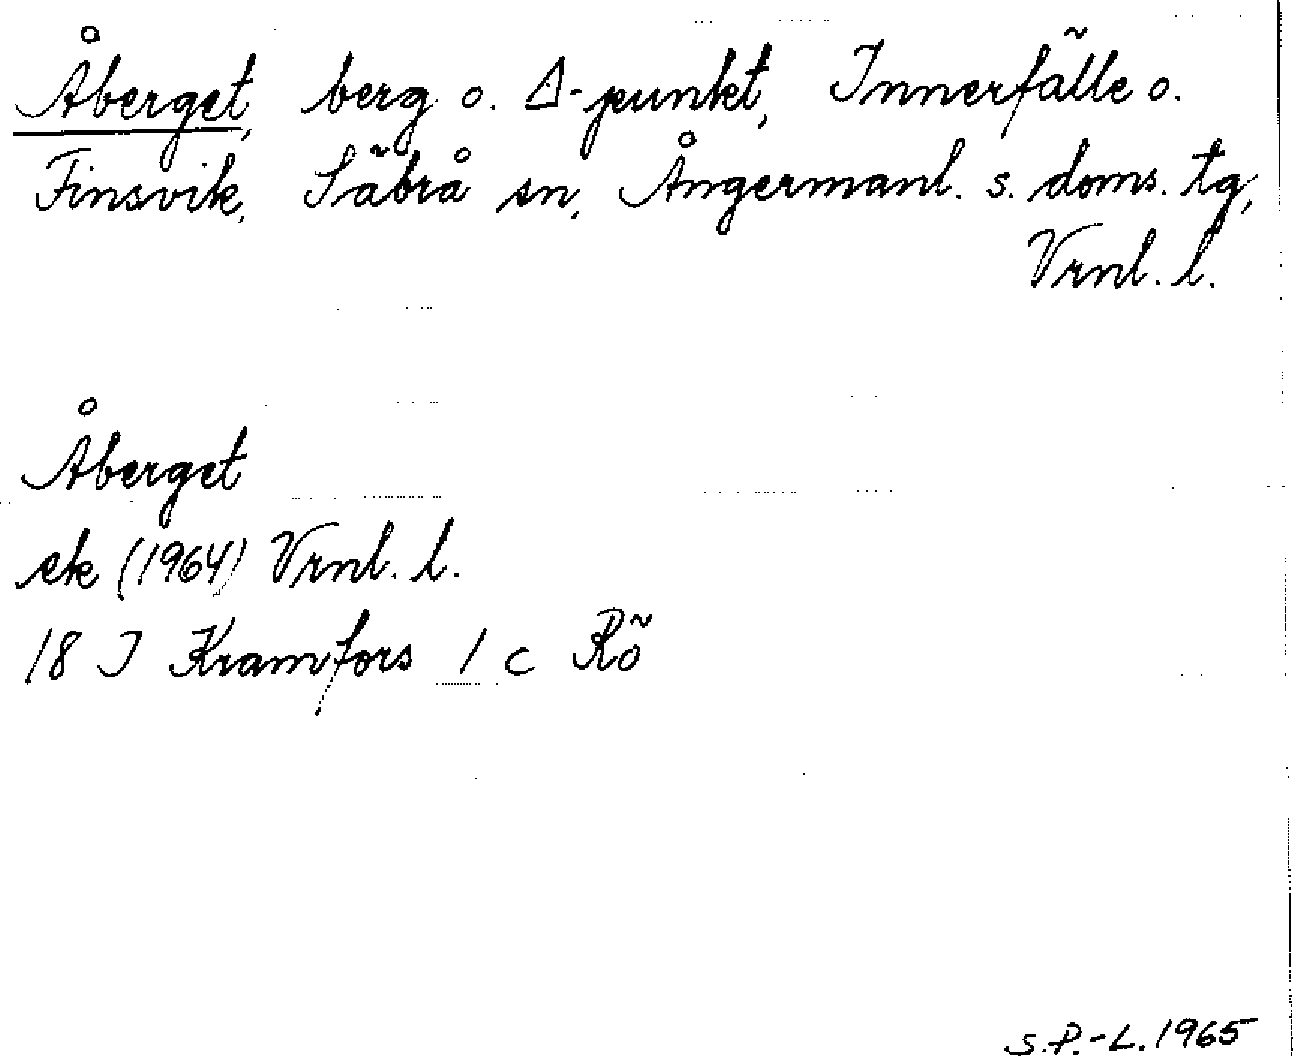 Åberget, berg o. Δ-punkt, Innerfälle o.
Finsvik, Säbrå sn, Ångermanl. s. doms. tg,
Vrnl. l.
Åberget
ek (1964) Vrnl. l.
18 I Kramfors 1 c Rö
S.P.-L. 1965